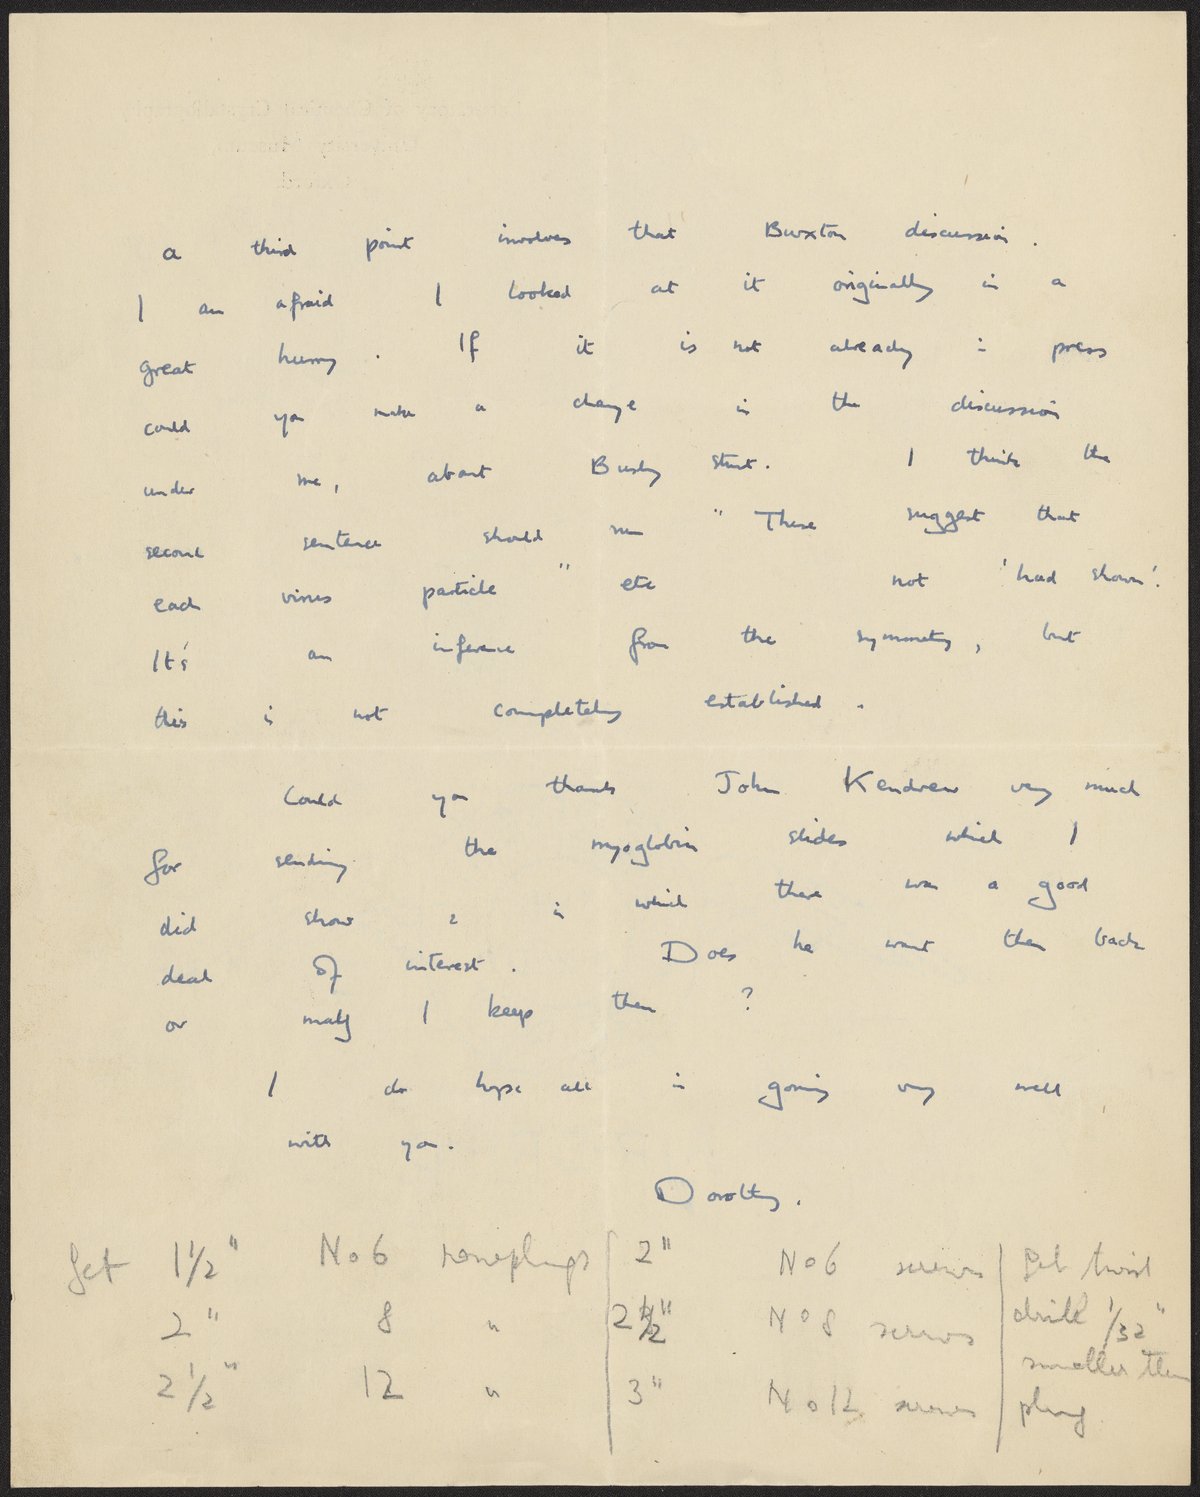 a third point involves that Buxton discussion.
I am afraid I looked at it originally in a
great hurry. If it is not already in press
could you make a change in the discussion
under me, about Bushy stunt. I think the
second sentence should run "These suggest that
each virus particle" etc not 'had shown'.
It's an inference from the symmetry, but
this is not completely established.
Could you thank John Kendrew very much
for sending the myoglobin slides which I
did show & in which there was a good
deal of interest. Does he want them back
or may I keep them?
I do hope all is going very well
with you.
Dorothy.
Get 1 1/2" No 6 rawlplugs | 2" No 6 screws | Get twist
2" 8 " 2 1/2" No 8 screws drill 1/32"
smaller than
2 1/2" 12 " 3" No 12 screws plug